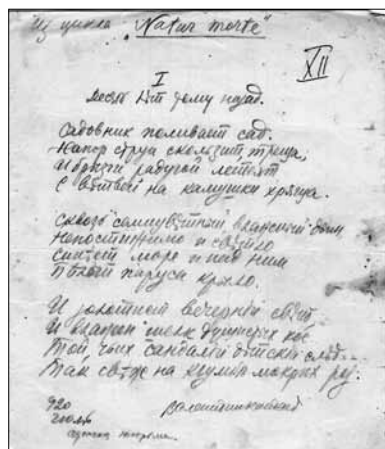 Из цикла „Natur morte"
XII
I
Десять лет тому назад.
Садовник поливает сад.
Напор струи скользит, треща,
И брызги радугой летят
С на камушки хряща.
Сквозь влажный дым,
Непостижимо и светло
Синеет море и над ним
Белый паруса крыло.
И золотист вечерний свет
И влажен шелк душистых кос
Той чьих сандалий детский след
Так свеж на клумбе мокрых роз.
920
Валентин Катаев
Одесса тюрьма.